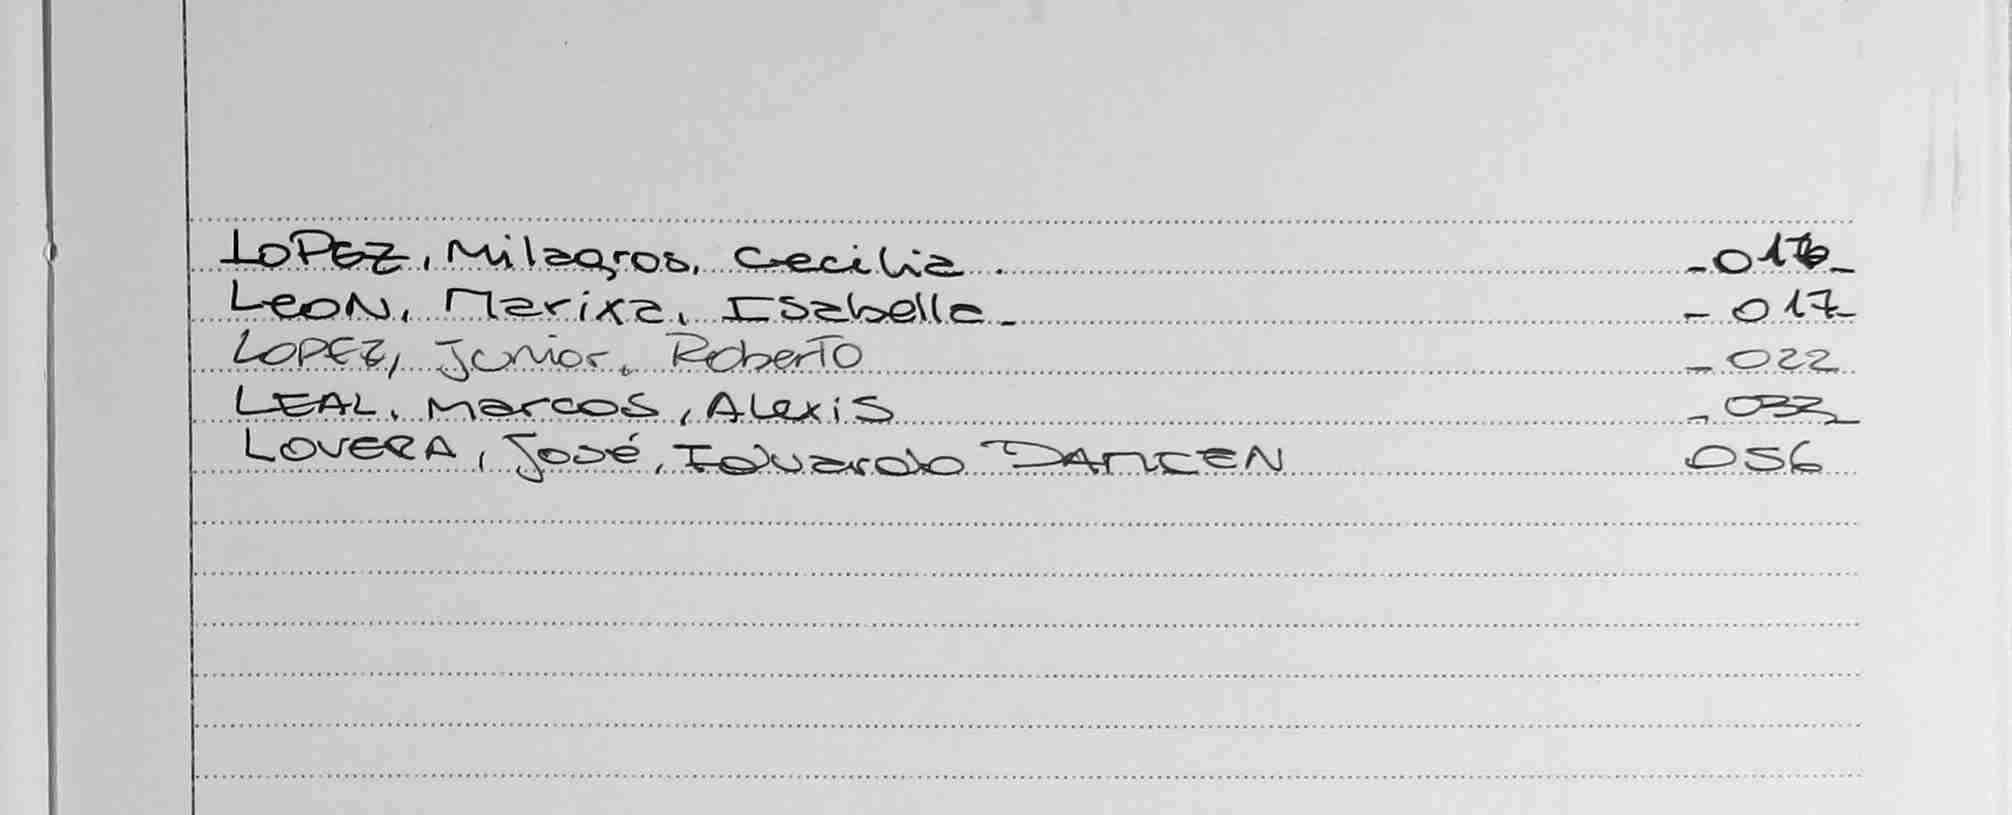 LOPEZ, Milagros, Cecilia. -016-
LEON, Marixa, Isabella- -017-
LOPEZ, Junior, Roberto -022
LEAL, Marcos, Alexis -032-
LOVERA, José, Eduardo 056